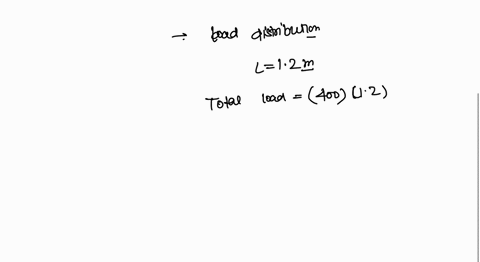 → Load distribution
L=1.2m
Total load = (400) (1.2)